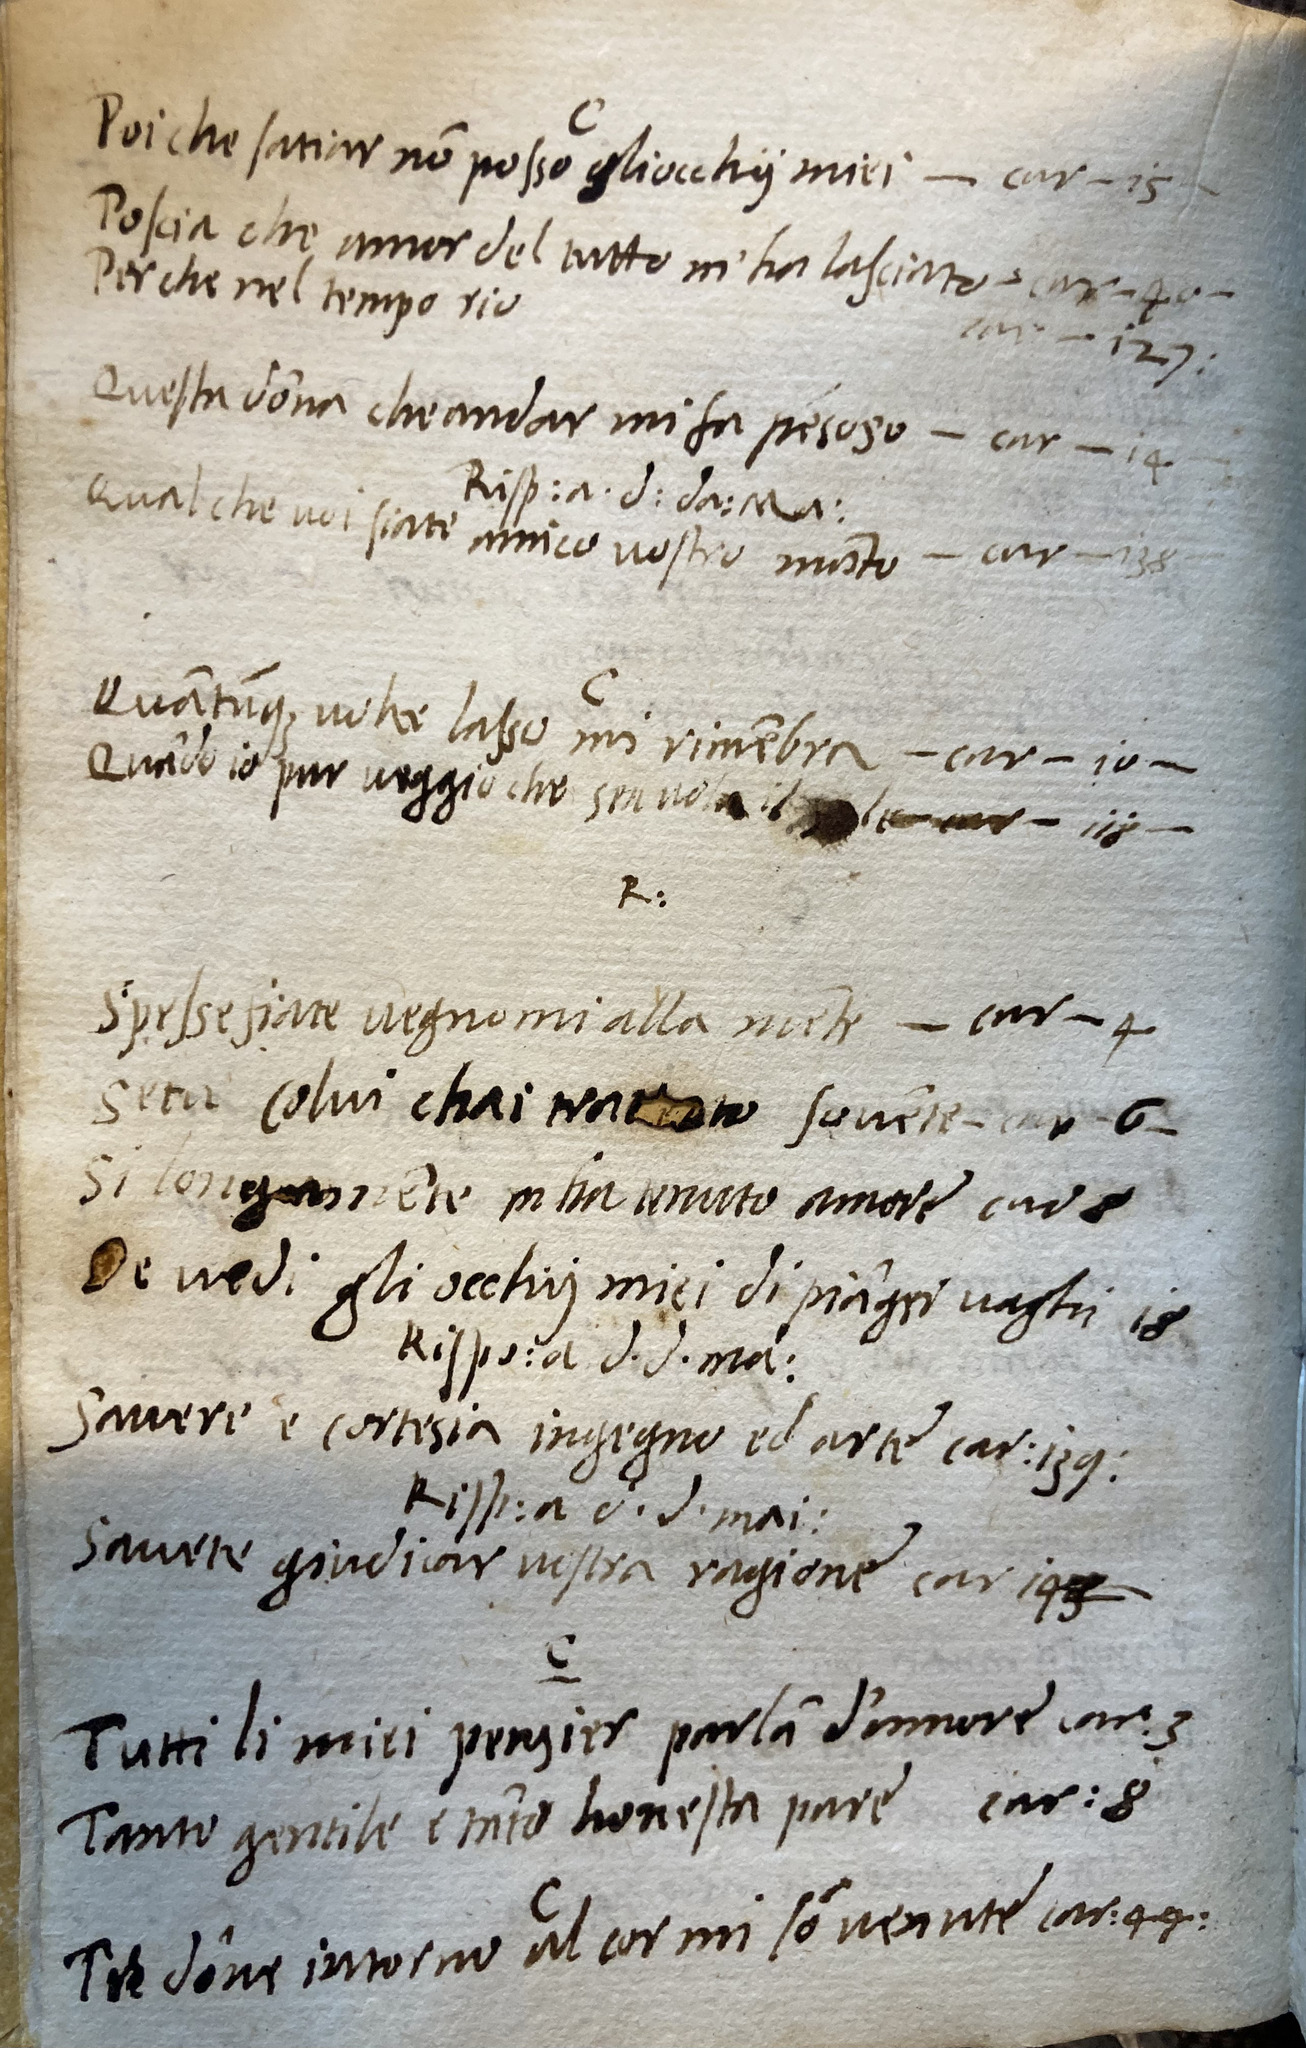 C
Poi che satiar nō posso gliocchij miei — car — 15 —
Poscia che amor del tutto m'ha lasciato — car — 40 —
Perche nel tempo rio car — 127:
Questa dōna cheandar mi fa pēsoso — car — 14
Risp: a · d: da: ma:
Qual che uoi siate amico uostro māto — car — 138
C
Quātūq; uolte lasso mi rimēbra — car — 10 —
Quādo io pur ueggio che sen uola il le car — 118 —
R:
Spesse fiate uegnomi alla mēte — car — 4
Setu colui chai to souēte — car — 6 —
Si longamēte m ha tenuto amore car 8
De uedi gli occhij miei di piāger uaghi 18
Rispo: a d · d · ma:
Sauere e cortesia ingegno ed arte car: 139:
Risp: a d · d · mai:
Sauete giudicar uostra ragione car
C
Tutti li miei pensier parlā d'amore car: 3
Tanto gentile e tāto honesta pare car: 8
C
Tre dōne intorno al cor mi sō uenute car: 44: